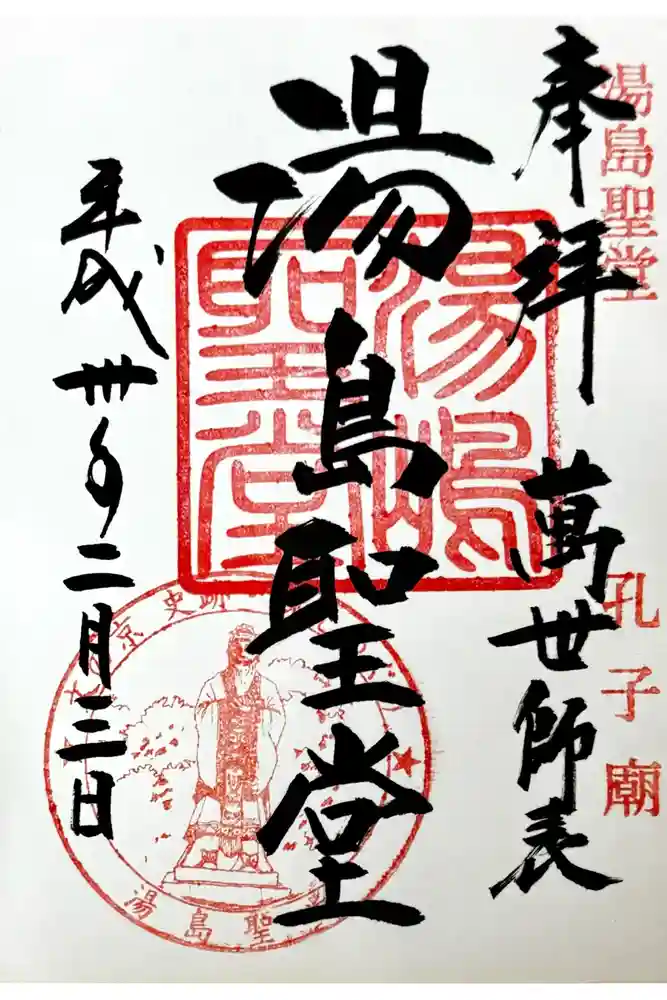 湯島聖堂
孔子廟
奉拝
萬世師表
湯島聖堂
湯嶋聖堂
平成卅年二月三日
京史跡
湯島聖